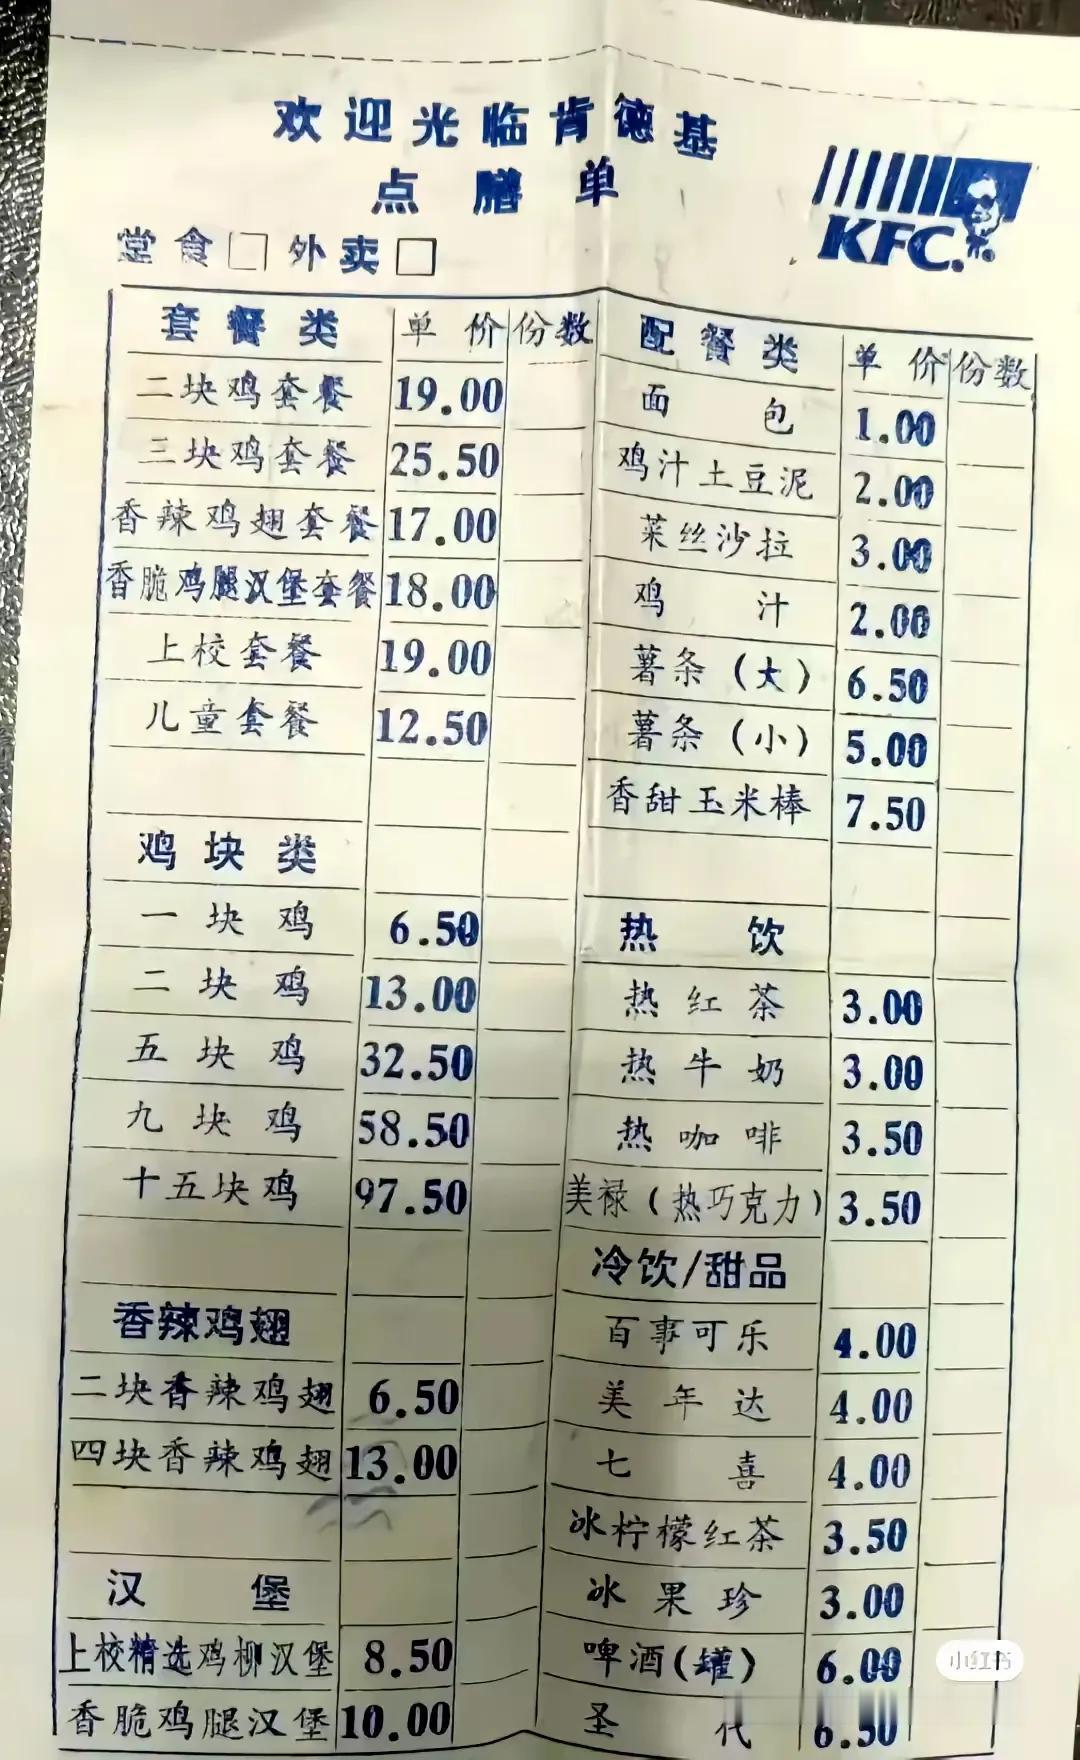 欢迎光临肯德基
点膳单
KFC.
堂食□ 外卖□
套餐类 单价 份数
二块鸡套餐 19.00
三块鸡套餐 25.50
香辣鸡翅套餐 17.00
香脆鸡腿汉堡套餐 18.00
上校套餐 19.00
儿童套餐 12.50
鸡块类
一块鸡 6.50
二块鸡 13.00
五块鸡 32.50
九块鸡 58.50
十五块鸡 97.50
香辣鸡翅
二块香辣鸡翅 6.50
四块香辣鸡翅 13.00
汉堡
上校精选鸡柳汉堡 8.50
香脆鸡腿汉堡 10.00
配餐类 单价 份数
面包 1.00
鸡汁土豆泥 2.00
菜丝沙拉 3.00
鸡汁 2.00
薯条(大) 6.50
薯条(小) 5.00
香甜玉米棒 7.50
热饮
热红茶 3.00
热牛奶 3.00
热咖啡 3.50
美禄(热巧克力) 3.50
冷饮/甜品
百事可乐 4.00
美年达 4.00
七喜 4.00
冰柠檬红茶 3.50
冰果珍 3.00
啤酒(罐) 6.00
圣代 6.50
小红书